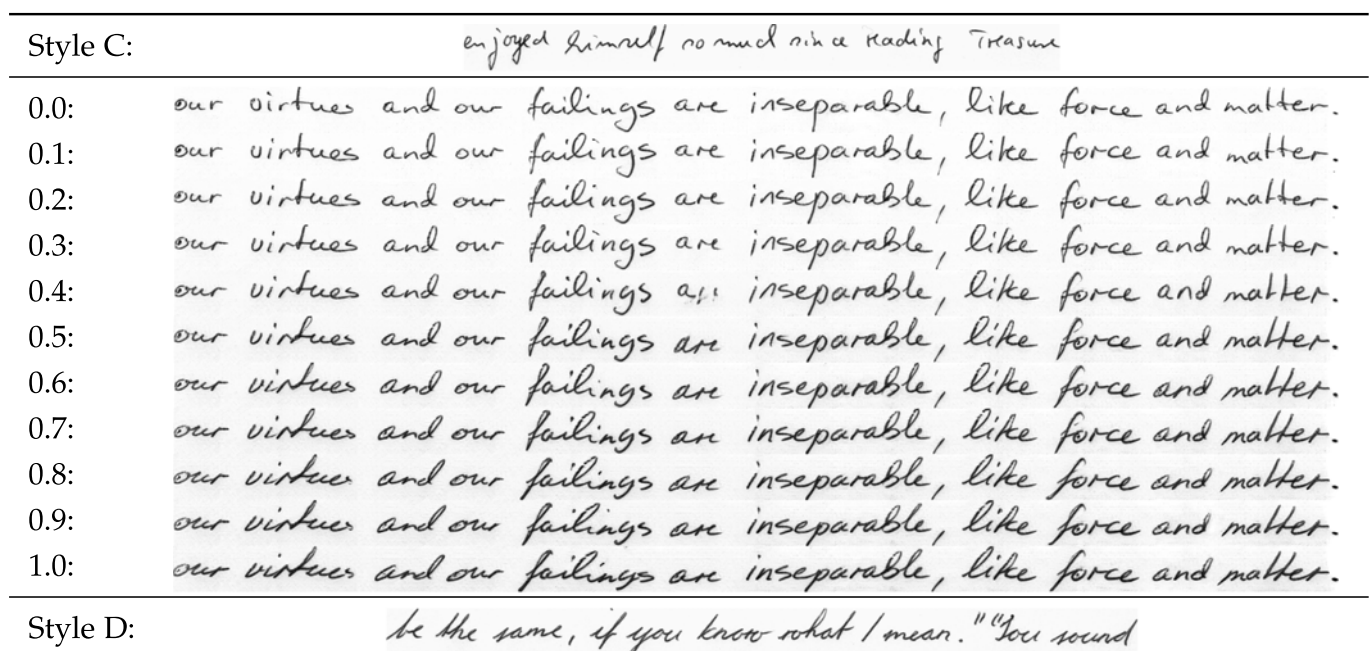 Style C: enjoyed himself so much since reading Treasure
0.0: our virtues and our failings are inseparable, like force and matter.
0.1: our virtues and our failings are inseparable, like force and matter.
0.2: our virtues and our failings are inseparable, like force and matter.
0.3: our virtues and our failings are inseparable, like force and matter.
0.4: our virtues and our failings inseparable, like force and matter.
0.5: our virtues and our failings are inseparable, like force and matter.
0.6: our virtues and our failings are inseparable, like force and matter.
0.7: our virtues and our failings are inseparable, like force and matter.
0.8: our virtues and our failings are inseparable, like force and matter.
0.9: our virtues and our failings are inseparable, like force and matter.
1.0: our virtues and our failings are inseparable, like force and matter.
Style D: be the same, if you know what I mean." "You sound